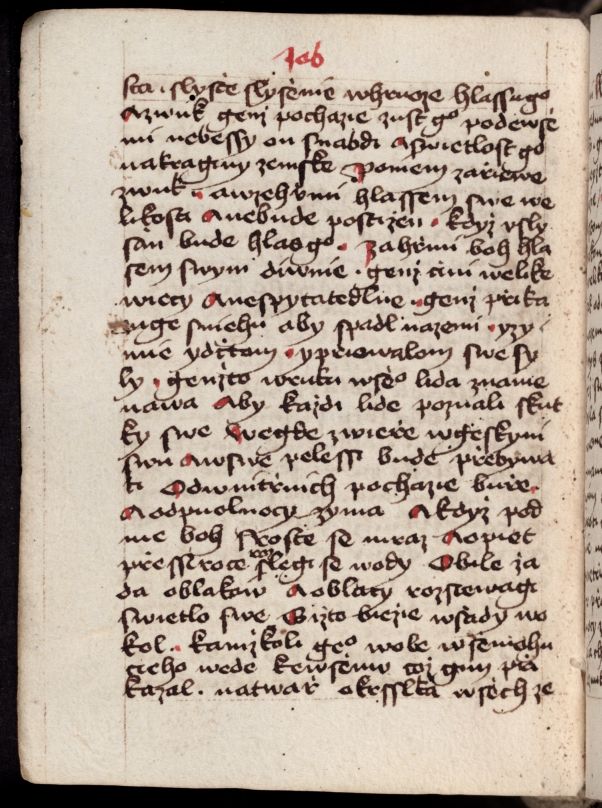 Job
sta · slyste slyšenie whruoze hlassugo
Azwuk genž pochazie zust go podewse
mi nebessy on snabdi Aswietlost go
nakraginy zemske Poniem zarziewe
zwuk · awzehrmi hlassem swe we
likosti Anebude postižen · kdyz vsly
šan bude hlas go · Zahrmi boh hla
sem swym diwnie · genž čini welike
wiecy Anespytatedlne · genž přika
zuge sniehu aby spadl nazemi · yzy
mie ydčtom · yprziewalom swe sy
ly · genžto wruku wšeo lida zname
nawa Aby každi lide poznali skut
ky swe Wegde zwieře wgeskyni
swu Awswe pelessi bude přebywa
ti Odwnitrnich pochazie buře
Aodpuolnocy zyma Akdyž pod
me boh Sroste se mraz Aopiet
přessiroce rozslegi se wody Obile ža
da oblakow Aoblaky rozsiewagi
swietlo swe Gižto biezie wšady wo
kol · kamžkoli geo wole wšemohu
cieho wede kewšemu což gim při
kazal · natwař okrsslka wšech ze